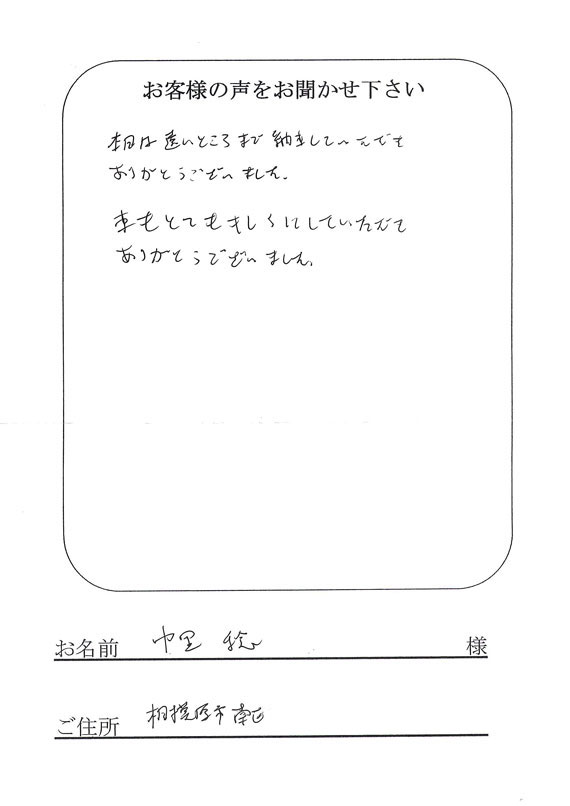 お客様の声をお聞かせ下さい
本日は遠いところまで納車していただき
ありがとうございました。
車もとてもキレイにしていただき
ありがとうございました。
お名前 中里 稔 様
ご住所 相模原市南区